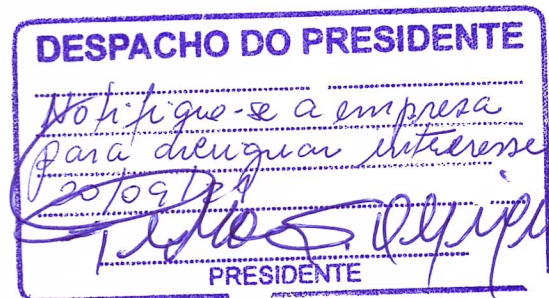 DESPACHO DO PRESIDENTE
Notifique-se a empresa
para interesse
20/09/
PRESIDENTE